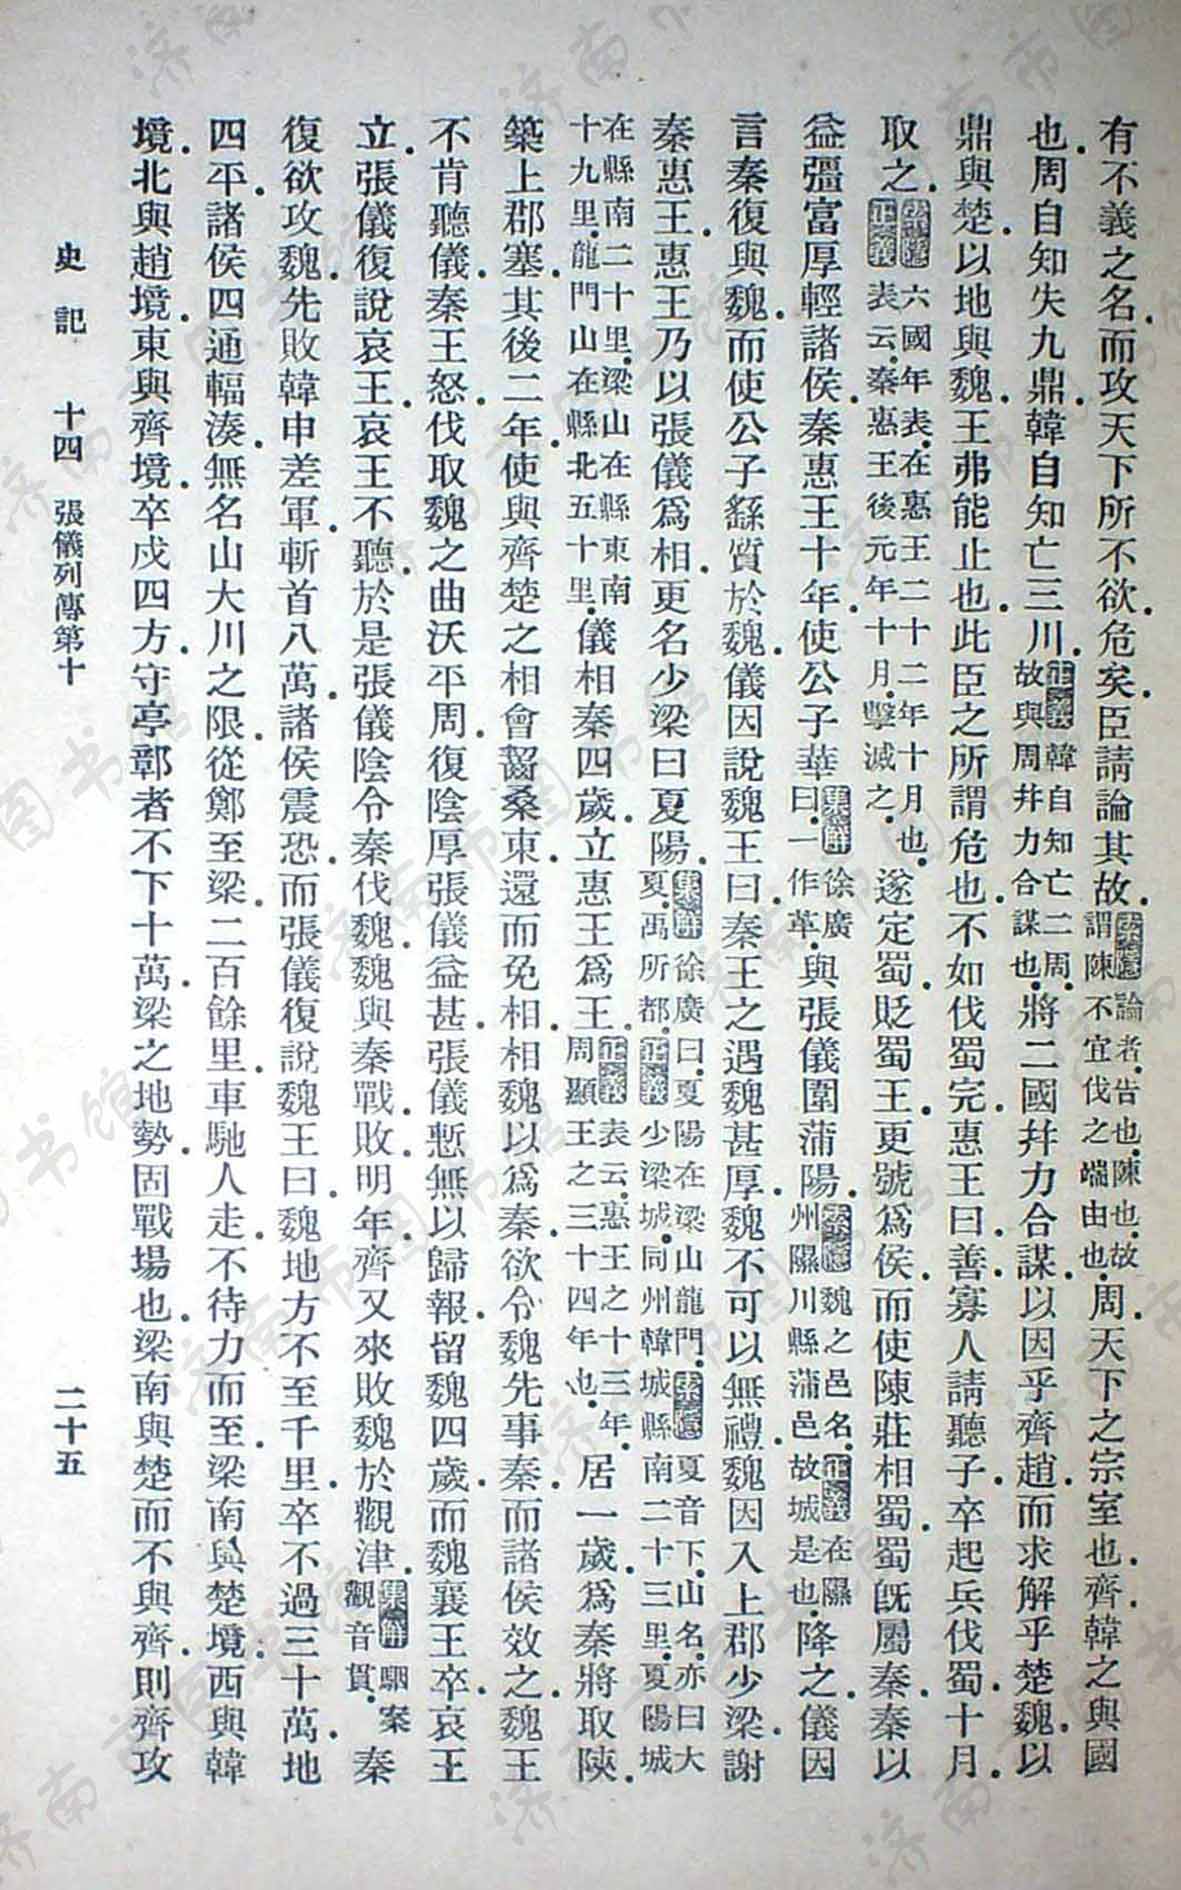 有不義之名而攻天下所不欲危矣臣請論其故索隱論者告也陳也故謂陳不宜伐之端由也周天下之宗室也齊韓之與國
也周自知失九鼎韓自知亡三川正義韓自知亡二周故與周幷力合謀也將二國幷力合謀以因乎齊趙而求解乎楚魏以
鼎與楚以地與魏王弗能止也此臣之所謂危也不如伐蜀完惠王曰善寡人請聽子卒起兵伐蜀十月
取之索隱六國年表在惠王二十二年十月也正義表云秦惠王後元年十月擊滅之遂定蜀貶蜀王更號爲侯而使陳莊相蜀蜀旣屬秦秦以
益彊富厚輕諸侯秦惠王十年使公子華集解徐廣曰一作革與張儀圍蒲陽索隱魏之邑名正義在隰州隰川縣蒲邑故城是也降之儀因
言秦復與魏而使公子繇質於魏儀因說魏王曰秦王之遇魏甚厚魏不可以無禮魏因入上郡少梁謝
秦惠王惠王乃以張儀爲相更名少梁曰夏陽集解徐廣曰夏陽在梁山龍門索隱夏音下山名亦曰大夏禹所都正義少梁城同州韓城縣南二十三里夏陽城
在縣南二十里梁山在縣東南十九里龍門山在縣北五十里儀相秦四歲立惠王爲王正義表云惠王之十三年周顯王之三十四年也居一歲爲秦將取陝
築上郡塞其後二年使與齊楚之相會齧桑東還而免相相魏以爲秦欲令魏先事秦而諸侯效之魏王
不肯聽儀秦王怒伐取魏之曲沃平周復陰厚張儀益甚張儀慙無以歸報留魏四歲而魏襄王卒哀王
立張儀復說哀王哀王不聽於是張儀陰令秦伐魏魏與秦戰敗明年齊又來敗魏於觀津集解駰案觀音貫秦
復欲攻魏先敗韓申差軍斬首八萬諸侯震恐而張儀復說魏王曰魏地方不至千里卒不過三十萬地
四平諸侯四通輻湊無名山大川之限從鄭至梁二百餘里車馳人走不待力而至梁南與楚境西與韓
境北與趙境東與齊境卒戍四方守亭鄣者不下十萬梁之地勢固戰場也梁南與楚而不與齊則齊攻
史記 十四 張儀列傳第十 二十五